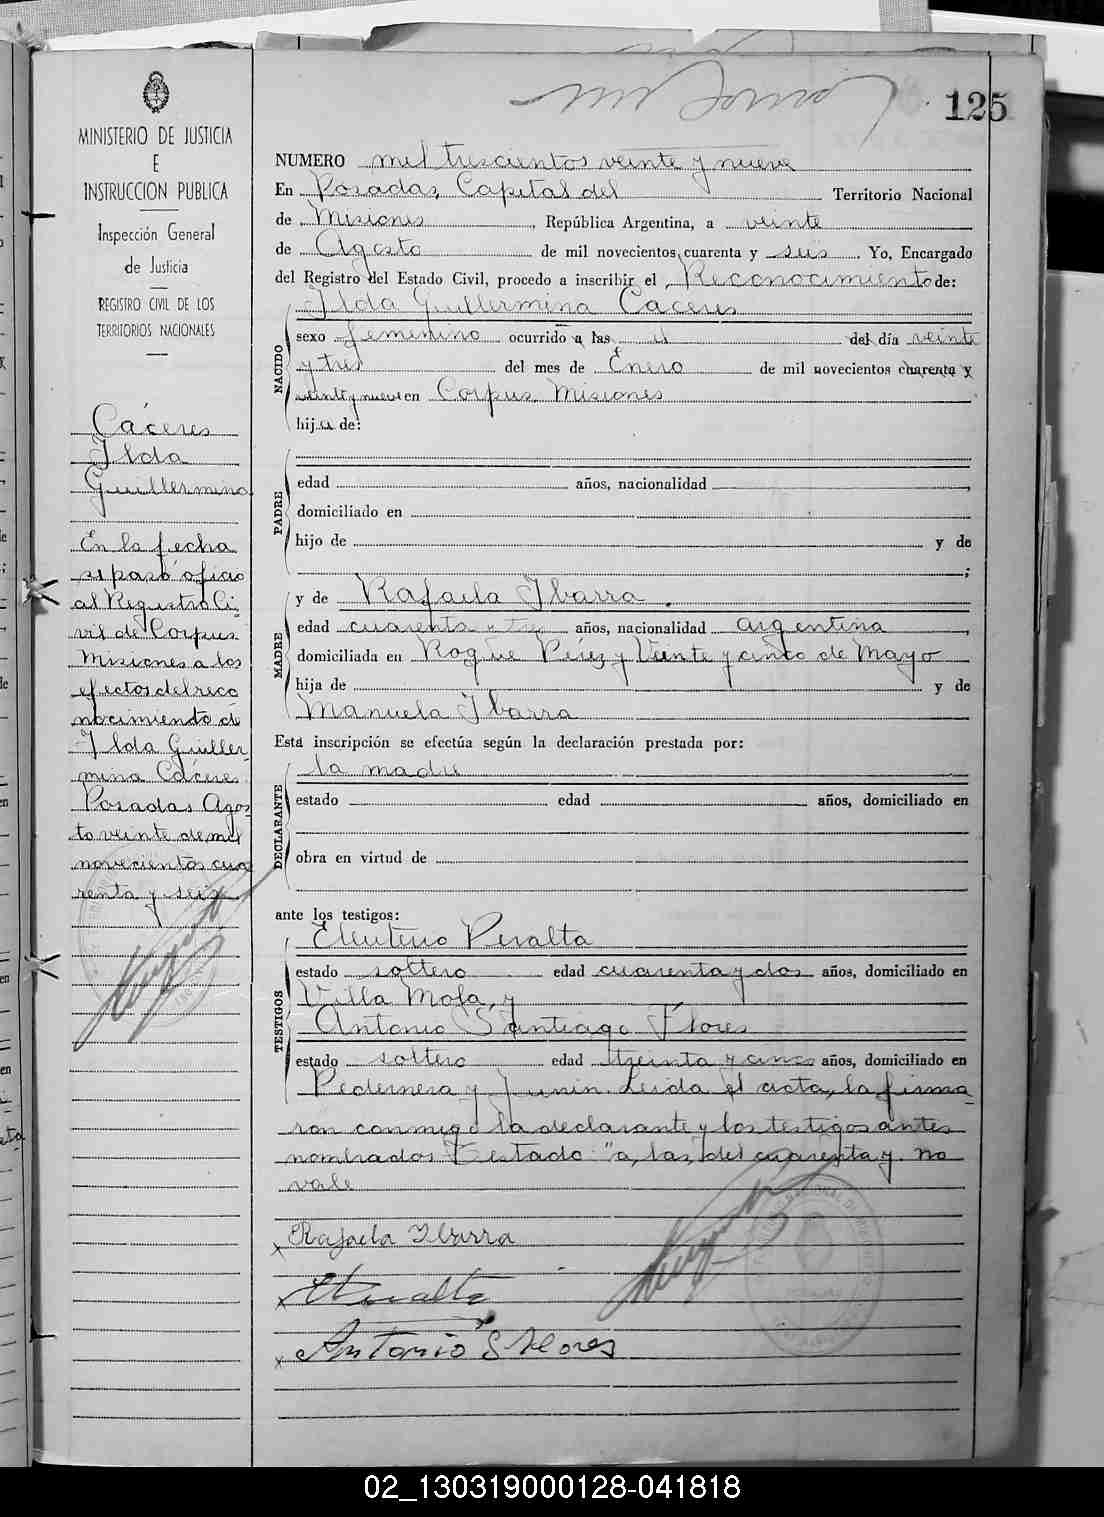 125
MINISTERIO DE JUSTICIA
E
INSTRUCCION PUBLICA
Inspección General
de Justicia
REGISTRO CIVIL DE LOS
TERRITORIOS NACIONALES
Cáceres
Ilda
Guillermina
En la fecha
se pasó oficio
al Registro Ci
vil de Corpus
Misiones a los
efectos del reco
nocimiento de
Ilda Guiller
mina Cáceres.
Posadas Agos
to veinte de mil
novecientos cua
renta y seis
NUMERO mil trescientos veinte y nueve
En Posadas, Capital del Territorio Nacional
de Misiones, República Argentina, a veinte
de Agosto de mil novecientos cuarenta y seis. Yo, Encargado
del Registro del Estado Civil, procedo a inscribir el Reconocimiento de:
NACIDO
Ilda Guillermina Caceres
sexo femenino ocurrido a las el del día veinte
y tres del mes de Enero de mil novecientos cuarenta y
veinte y nueve en Corpus Misiones
hija de:
PADRE
edad años, nacionalidad ,
domiciliado en
hijo de y de
;
MADRE
y de Rafaela Ibarra.
edad cuarenta y tres años, nacionalidad argentina,
domiciliada en Roque Pérez y Veinte y cinco de Mayo
hija de y de
Manuela Ibarra
Esta inscripción se efectúa según la declaración prestada por:
DECLARANTE
la madre
estado edad años, domiciliado en
obra en virtud de
ante los testigos:
TESTIGOS
Eleuterio Peralta
estado soltero edad cuarenta y dos años, domiciliado en
Villa Mola, y
Antonio Santiago Flores
estado soltero edad treinta y cinco años, domiciliado en
Pedernera y Junin. Leida el acta, la firma
ron conmigo la declarante y los testigos antes
nombrados Testado "a, las, del cuarenta y. no
vale
x Rafaela Ibarra
x EPeralta
x Antonio S Flores
02_130319000128-041818